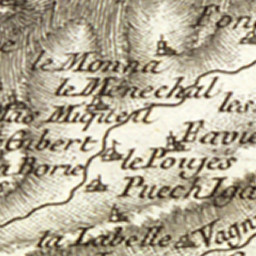 Fon
le Monna
le Menechal
les
Mas Miquel
Favie
Gibert
le Poujes
a Borie
Puech Iga
la Labelle
Vagn